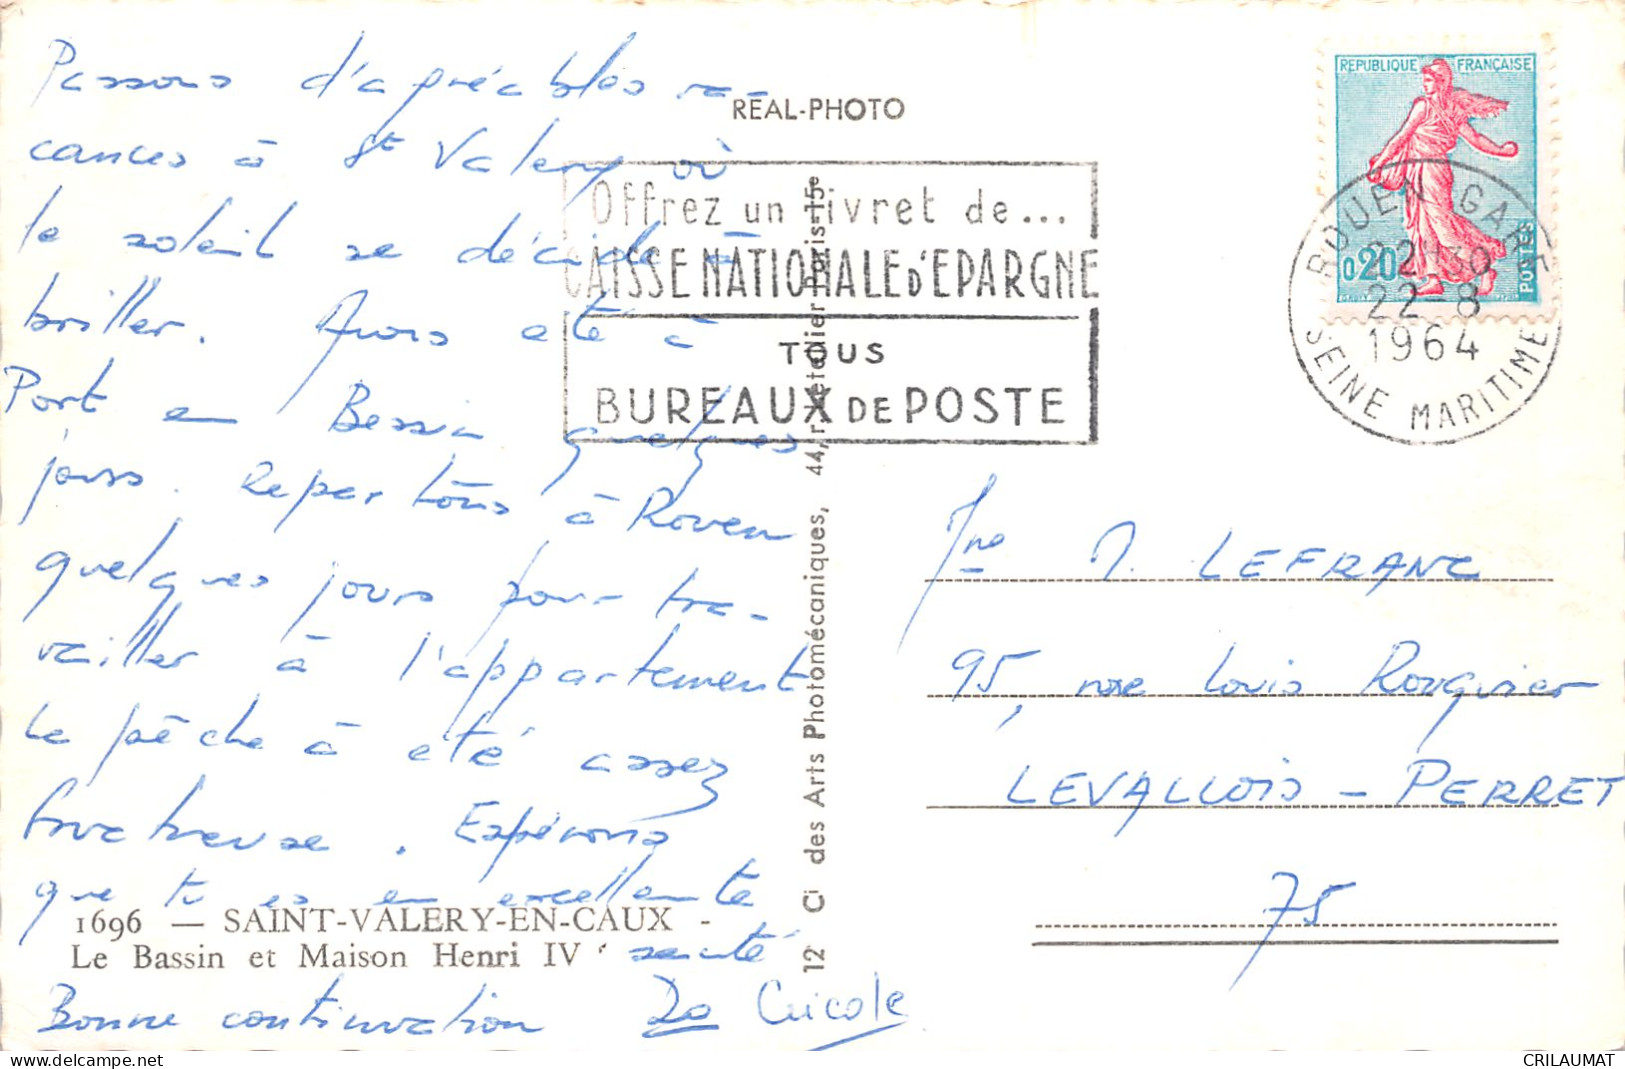 Passons d'agréables va-
cances à St Valery où
le soleil se décide à
briller. Avons été à
Port en Bessin quelques
jours. Repartons à Rouen
quelques jours pour tra-
vailler à l'appartement
La pêche à été assez
fructueuse. Espérons
que tu es en excellente
santé
Bonne continuation
REAL-PHOTO
Offrez un livret de...
CAISSE NATIONALE D'EPARGNE
TOUS
BUREAUX DE POSTE
REPUBLIQUE FRANÇAISE
0,20
POSTES
ROUEN GARE
22-8
1964
SEINE MARITIME
LEFRANC
95, rue Louis Rouquier
LEVALLOIS-PERRET
75
1696 — SAINT-VALERY-EN-CAUX -
Le Bassin et Maison Henri IV
12 Cie des Arts Photomécaniques, 44, r. Letellier Paris-15e
CPA148.com CRILAUMAT